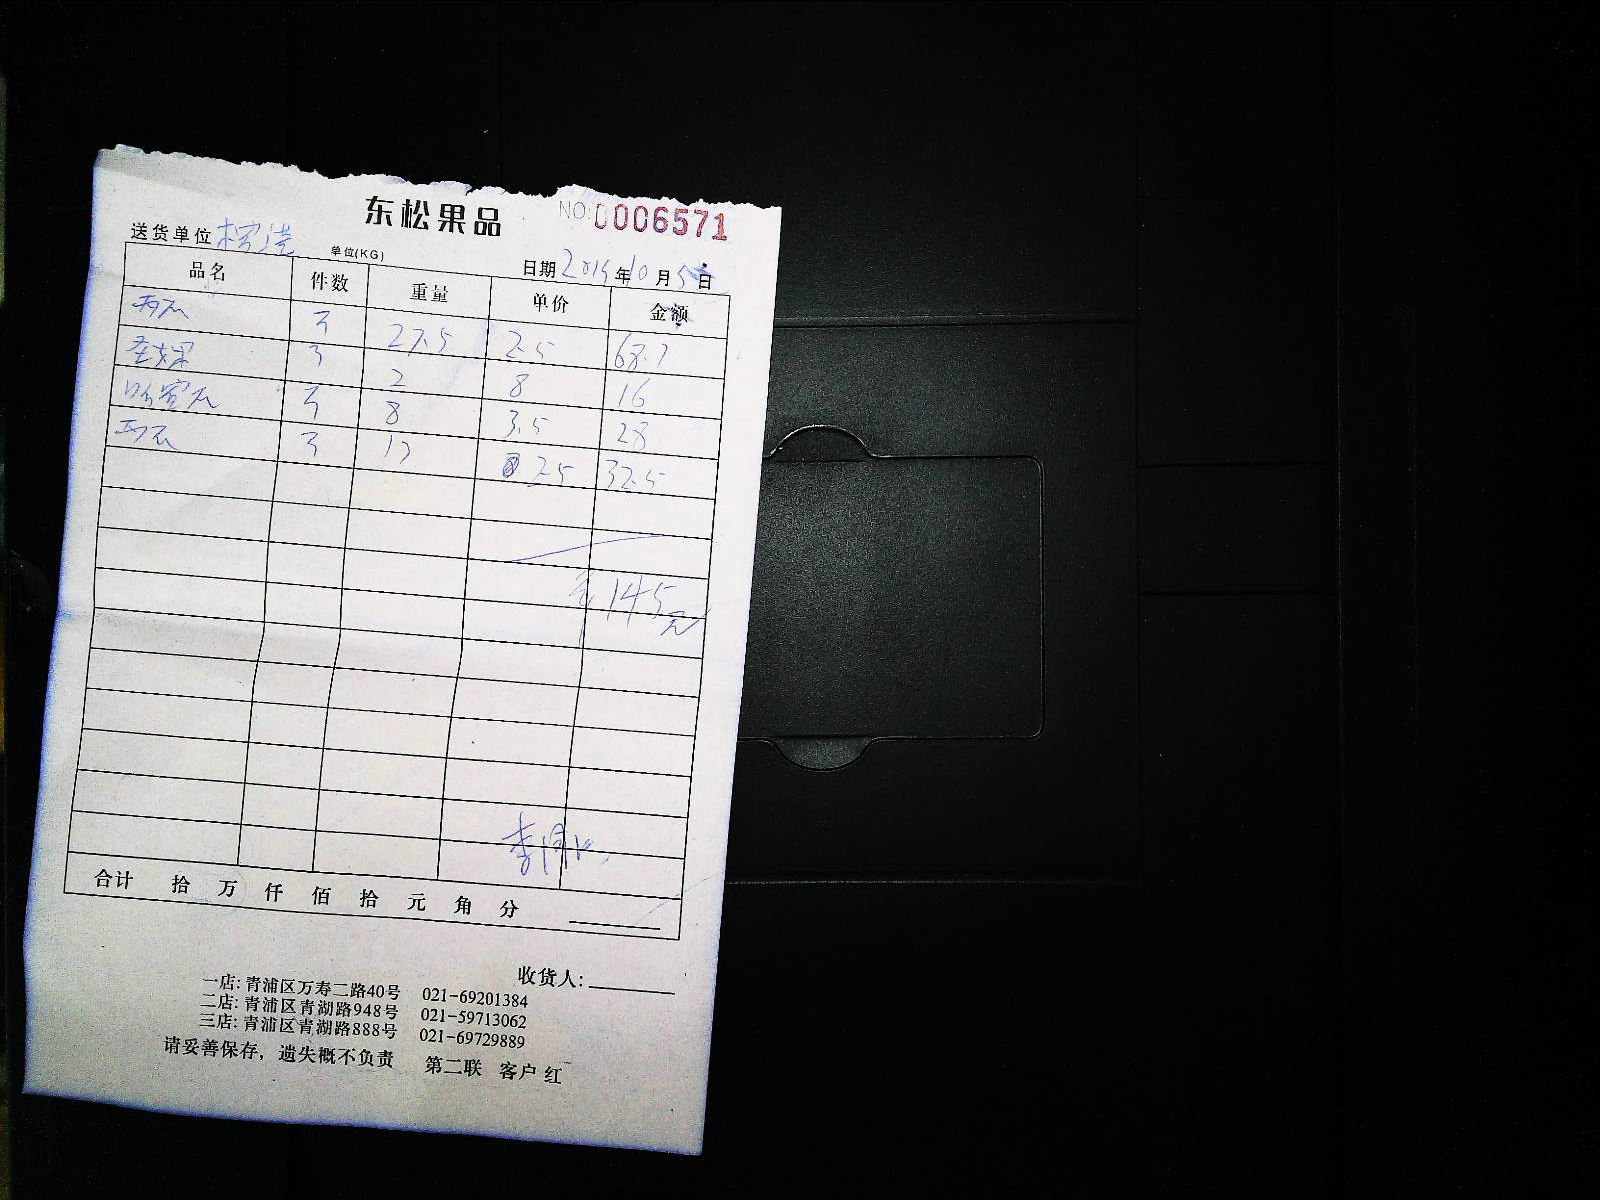 东松果品
NO:0006571
送货单位
单位(KG)
日期2015年10月5日
品名 件数 重量 单价 金额
西瓜 3 27.5 2.5 68.7
圣女果 3 2 8 16
哈密瓜 3 8 3.5 28
西瓜 3 13 2.5 32.5
145元
李
合计 拾 万 仟 佰 拾 元 角 分
收货人:
一店: 青浦区万寿二路40号 021-69201384
二店: 青浦区青湖路948号 021-59713062
三店: 青浦区青湖路888号 021-69729889
请妥善保存, 遗失概不负责 第二联 客户 红